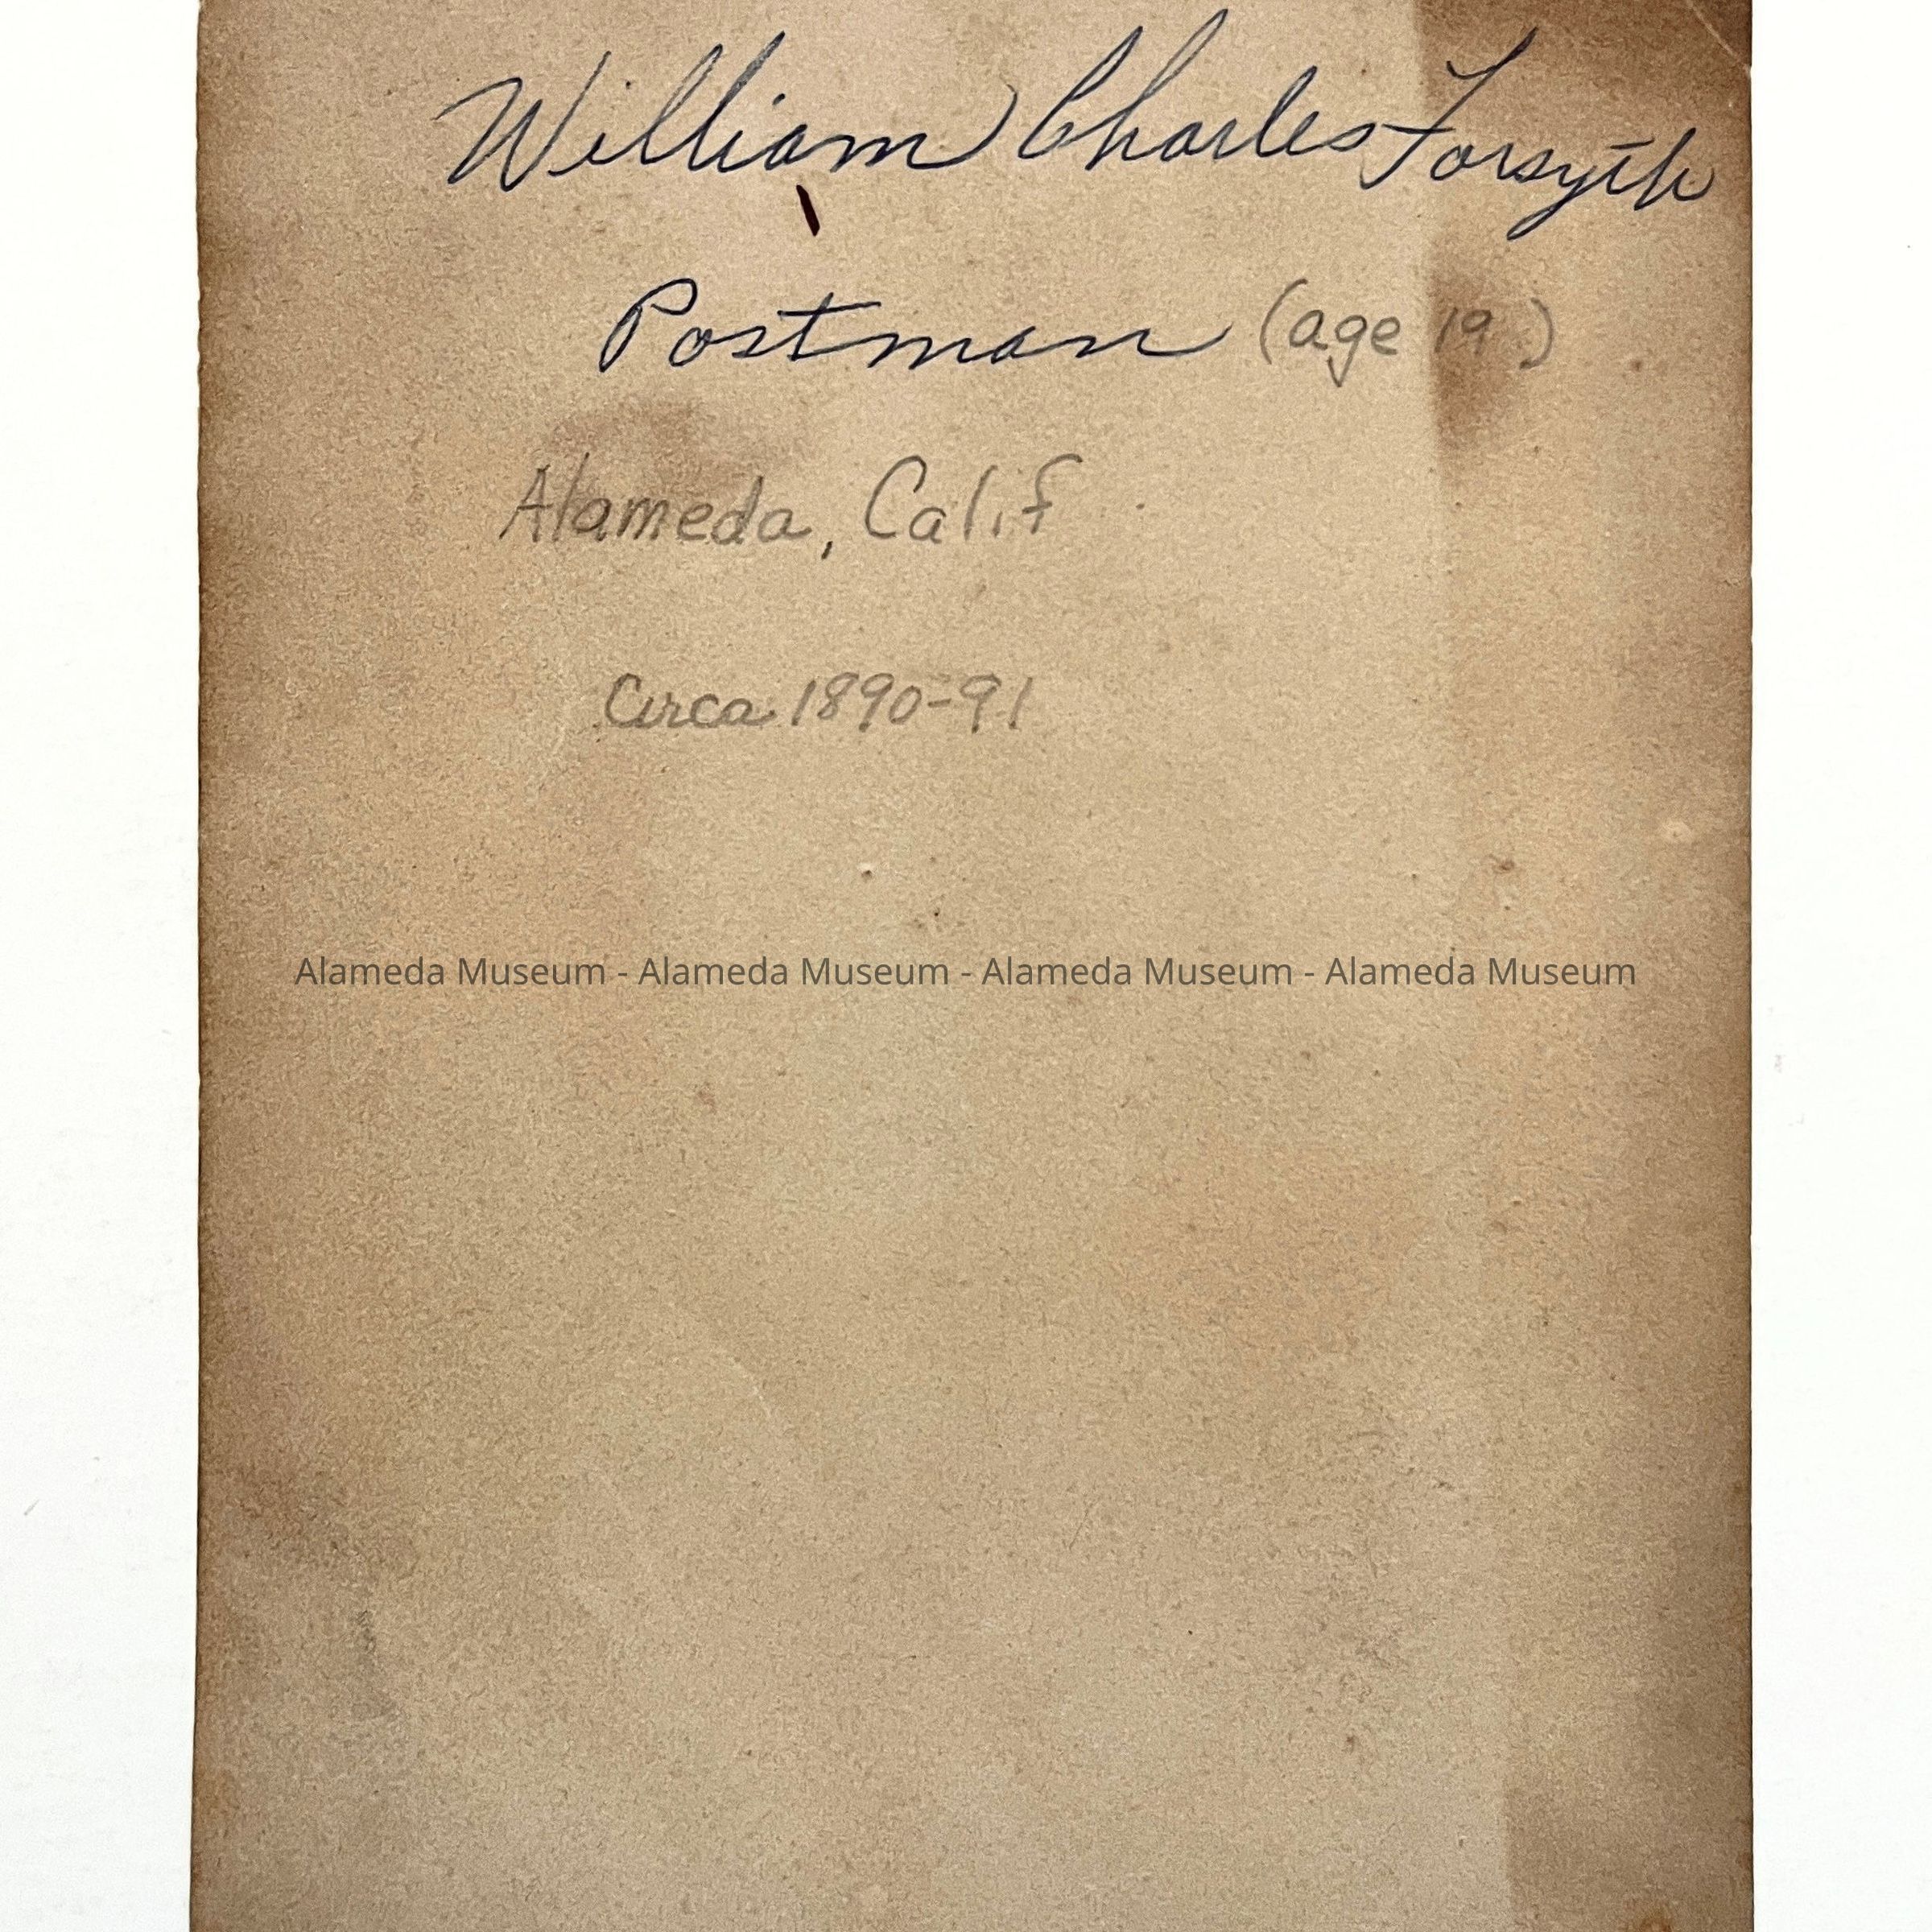 William Charles Forsyth
Postman (age 19)
Alameda, Calif
Circa 1890-91
Alameda Museum - Alameda Museum - Alameda Museum - Alameda Museum